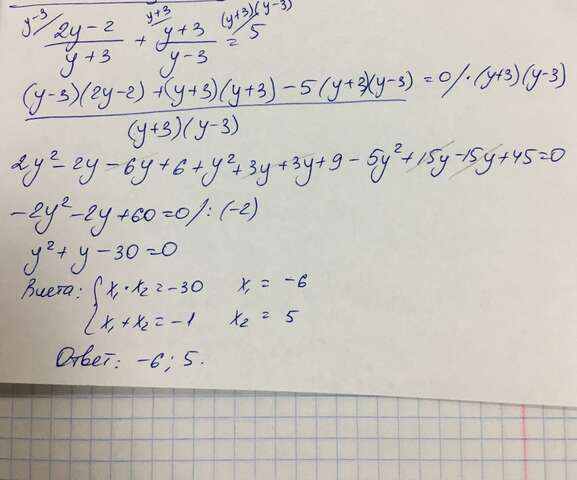 y-3/ (2y-2)/(y+3) + y+3/ (y+3)/(y-3) = (y+3)(y-3)/ 5
((y-3)(2y-2)+(y+3)(y+3)-5(y+3)(y-3))/((y+3)(y-3)) = 0 /·(y+3)(y-3)
2y²-2y-6y+6+y²+3y+3y+9-5y²+15y-15y+45=0
-2y²-2y+60=0 /:(-2)
y²+y-30=0
Виета: { x₁·x₂=-30 x₁ = -6
x₁+x₂=-1 x₂ = 5
Ответ: -6; 5.